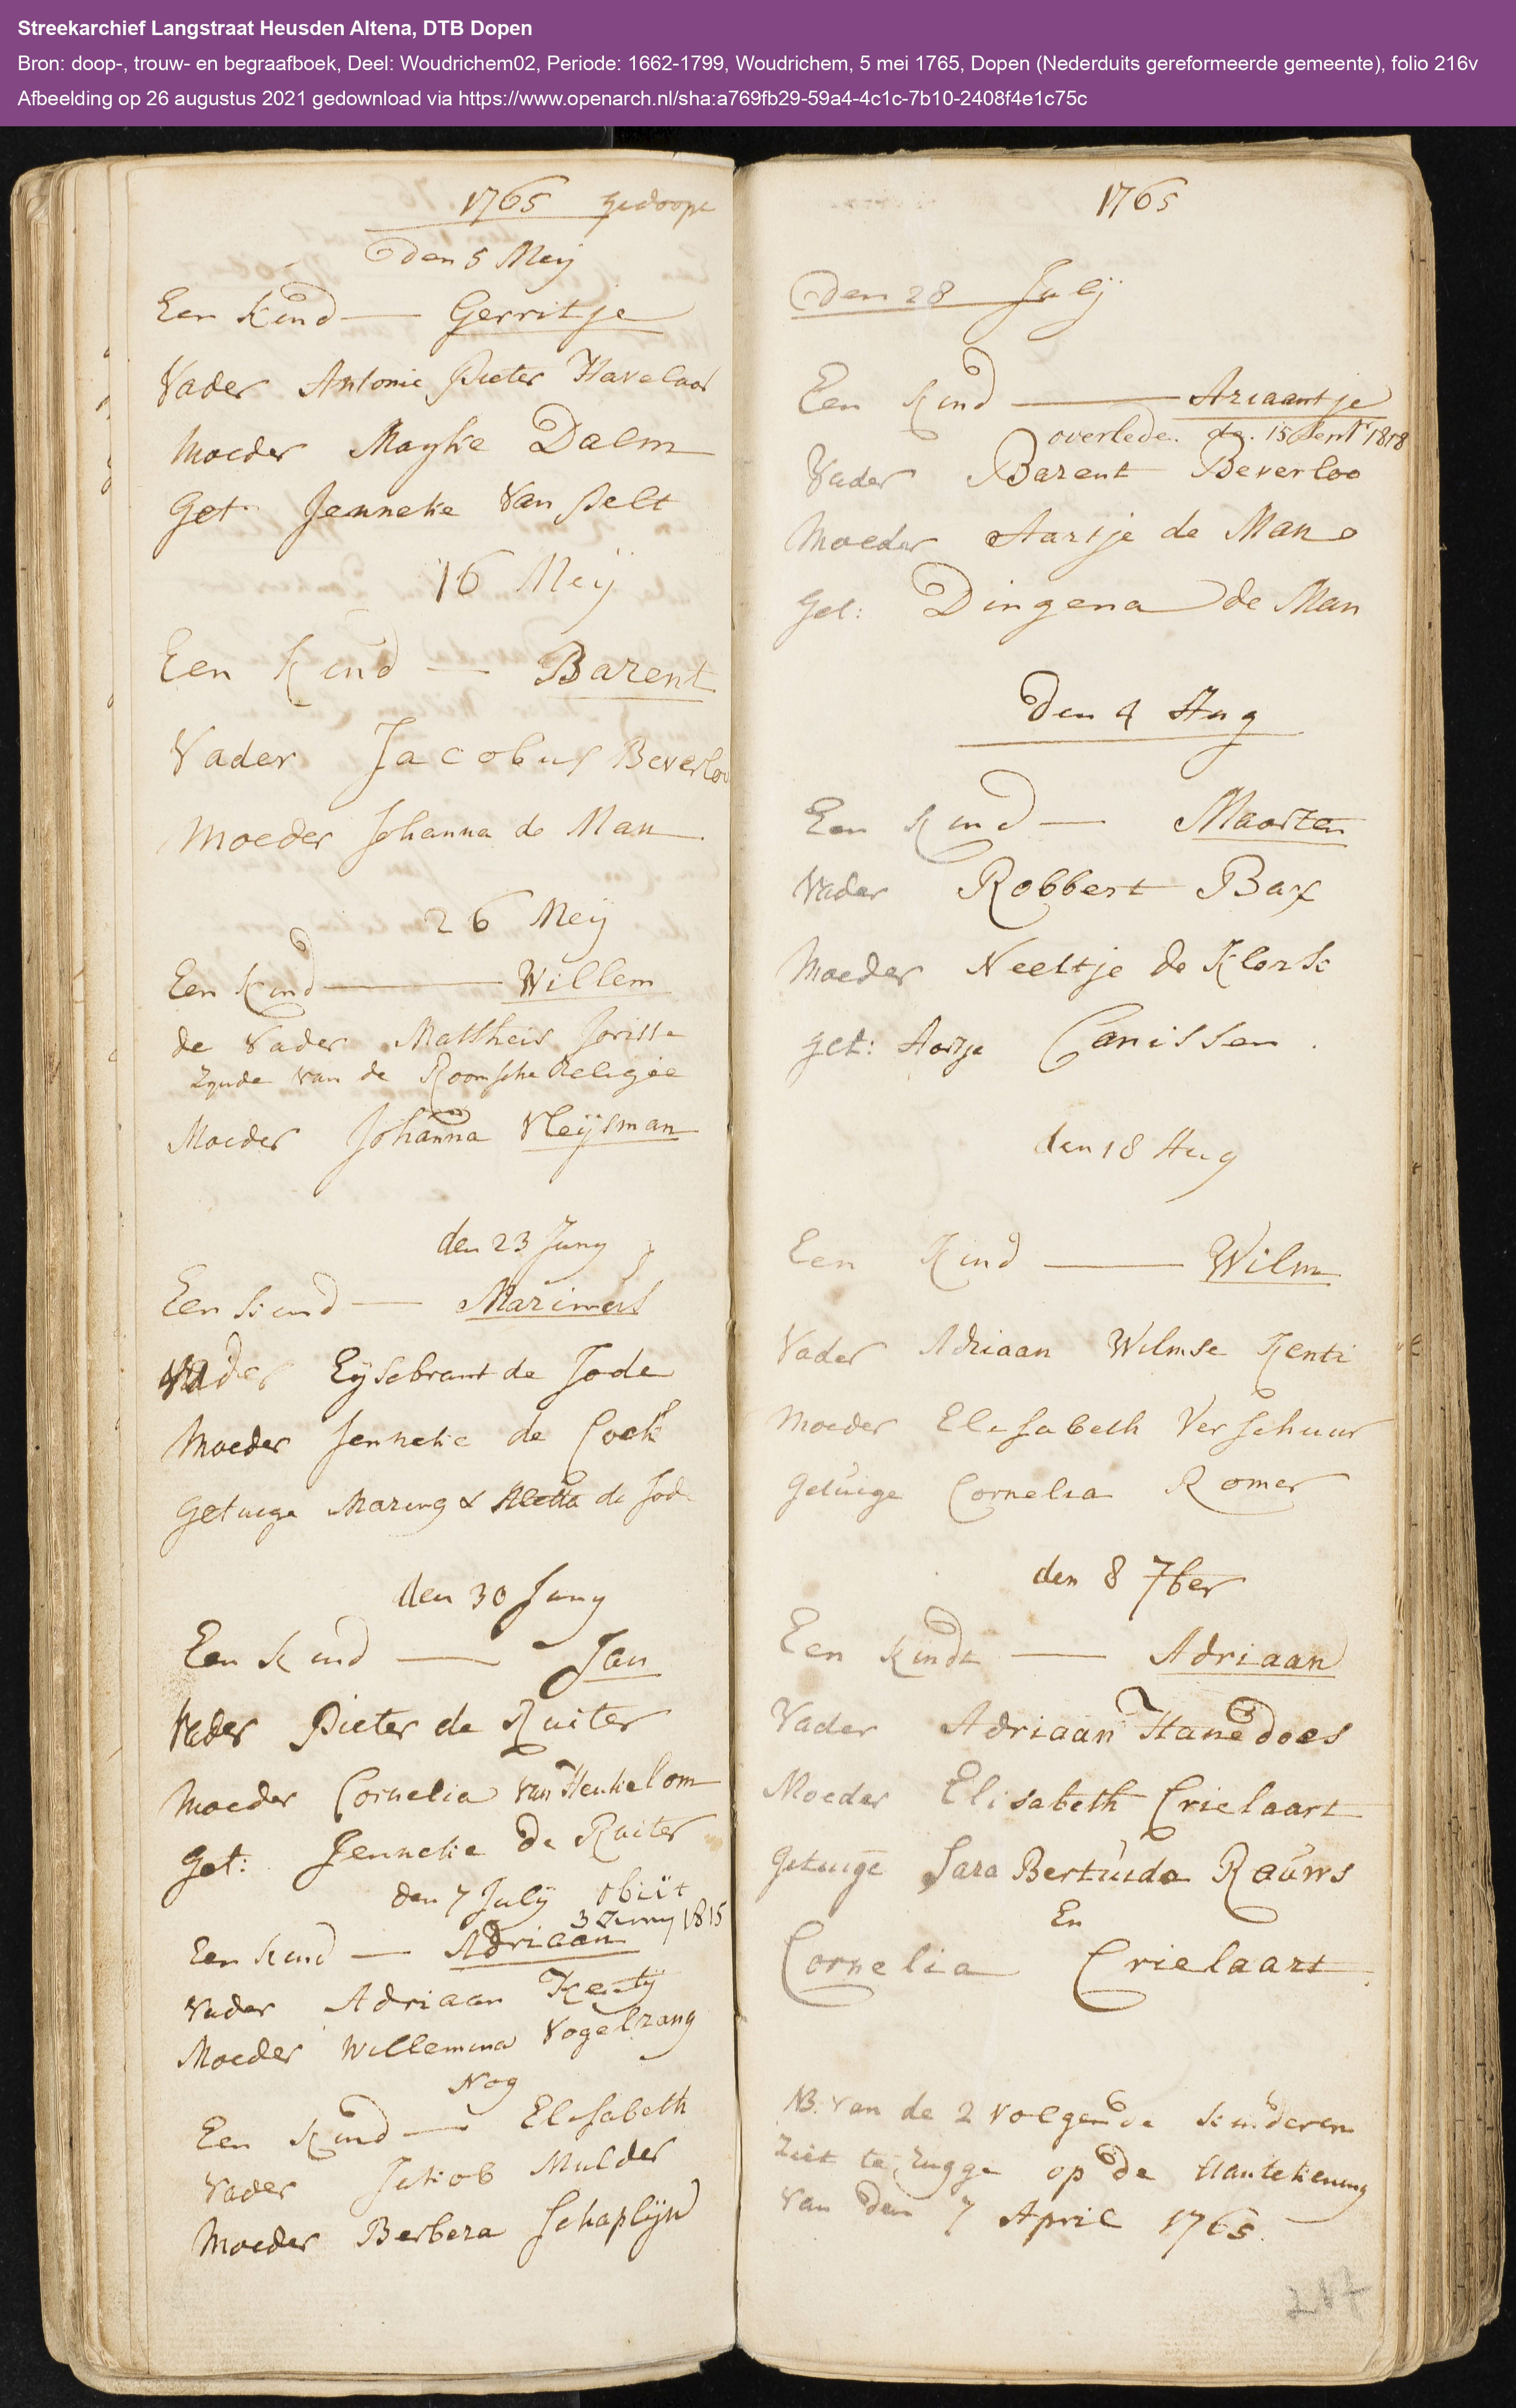 Streekarchief Langstraat Heusden Altena, DTB Dopen
Bron: doop-, trouw- en begraafboek, Deel: Woudrichem02, Periode: 1662-1799, Woudrichem, 5 mei 1765, Dopen (Nederduits gereformeerde gemeente), folio 216v
Afbeelding op 26 augustus 2021 gedownload via https://www.openarch.nl/sha:a769fb29-59a4-4c1c-7b10-2408f4e1c75c
1765 gedoopt
den 5 Meij
Een Kind — Gerritje
Vader Antonie Pieter Havelaar
Moeder Mayke Dalm
Get. Jenneke van Pelt
16 Meij
Een Kind — Barent
Vader Jacobus Beverloo
Moeder Johanna de Man
26 Meij
Een Kind — Willem
de Vader Mattheis Jorisse
zynde van de Roomsche Religie
Moeder Johanna Vleijsman
den 23 Juny
Een Kind — Marinus
Vader Eijsebrant de Jode
Moeder Jenneke de Cock
Getuige Maring & Aletta de Jode
den 30 Juny
Een Kind — Jan
Vader Pieter de Ruiter
Moeder Cornelia van Heukelom
Get: Jenneke de Ruiter
den 7 Julij obiit
3 Juny 1815
Een Kind — Adriaan
Vader Adriaan Kentij
Moeder Willemina Vogelzang
Nog
Een Kind — Elisabeth
Vader Jakob Mulder
Moeder Berbera Schaplijn
1765
Den 28 Julij
Een Kind — Ariaantje
overlede. de. 15 Sent 1818
Vader Barent Beverloo
Moeder Aartje de Man
Get: Dingena de Man
Den 4 Aug
Een Kind — Maarten
Vader Robbert Bax
Moeder Neeltje de Klerk
get: Aartje Canissen.
den 18 Aug
Een Kind — Wilm
Vader Adriaan Wilmse Kenti
Moeder Elisabeth Verschuur
Getuige Cornelia Romer
den 8 7ber
Een Kindt — Adriaan
Vader Adriaan Hanedoes
Moeder Elisabeth Crielaart
Getuige Sara Bertruida Rauws
En
Cornelia Crielaart
NB. van de 2 volgende kinderen
ziet te rugge op de Aantekening
van den 7 April 1765.
217